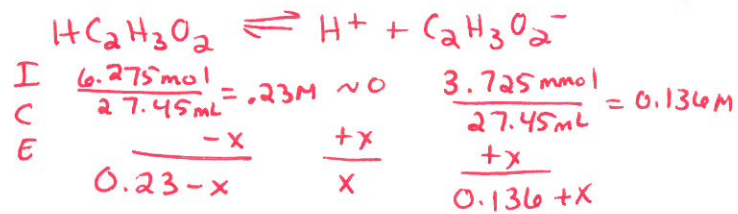 HC₂H₃O₂ ⇌ H⁺ + C₂H₃O₂⁻
I 6.275mol / 27.45mL = .23M ~0 3.725 mmol / 27.45mL = 0.136M
C -x +x +x
E 0.23-x x 0.136+x